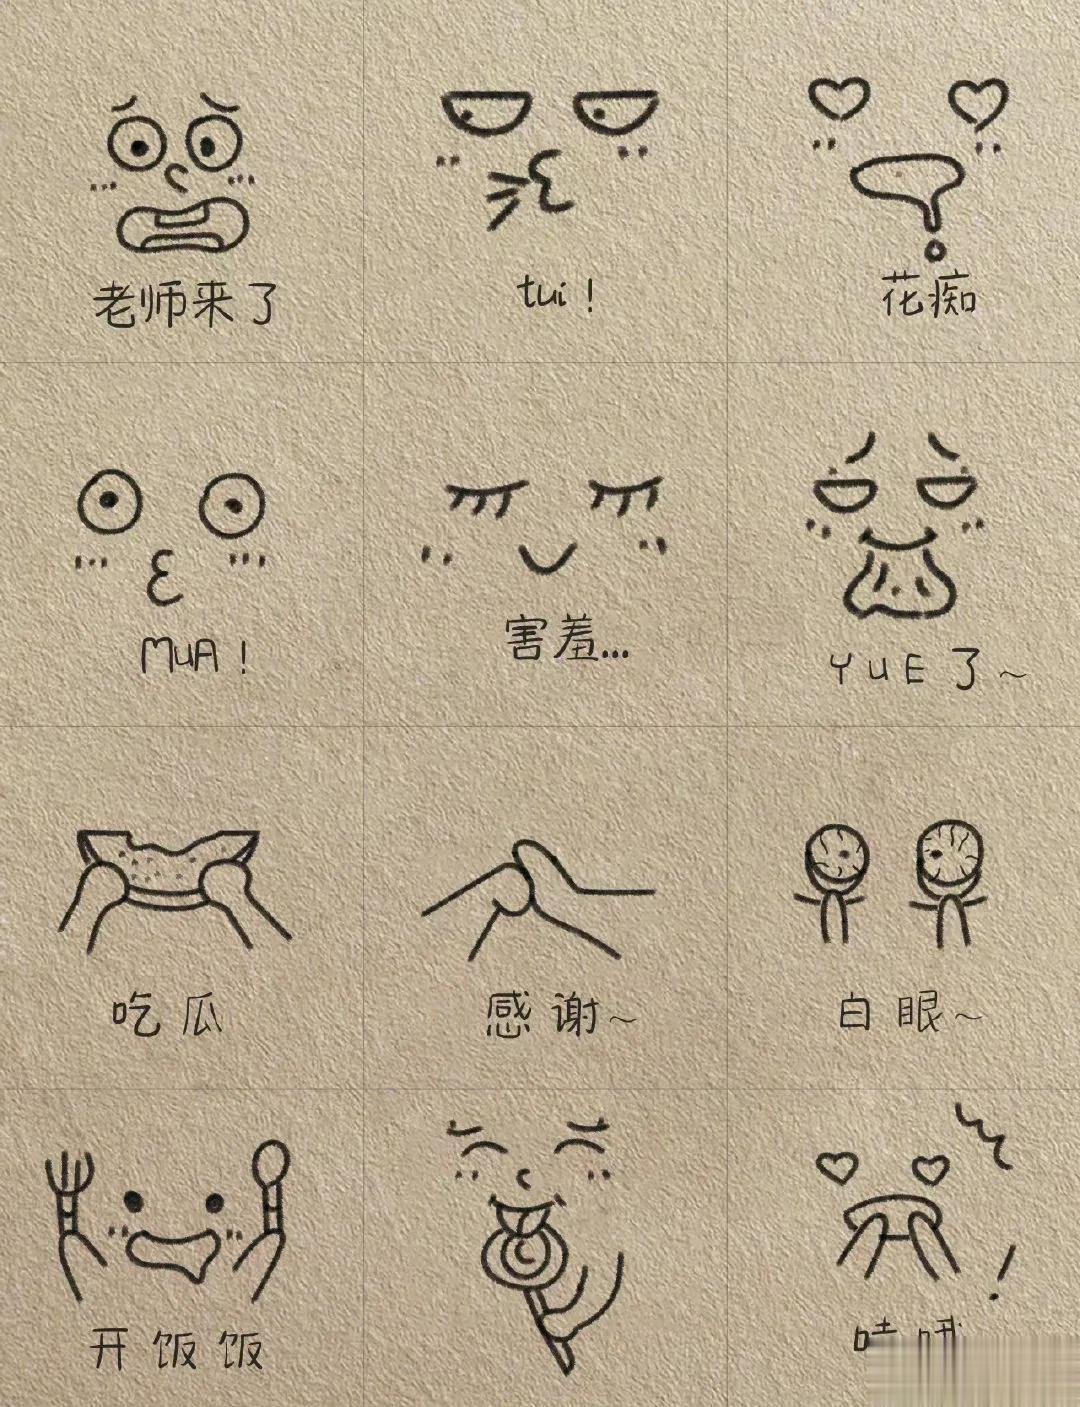 老师来了
tui！
花痴
MuA！
害羞...
YUE了~
吃瓜
感谢~
白眼~
开饭饭
哇